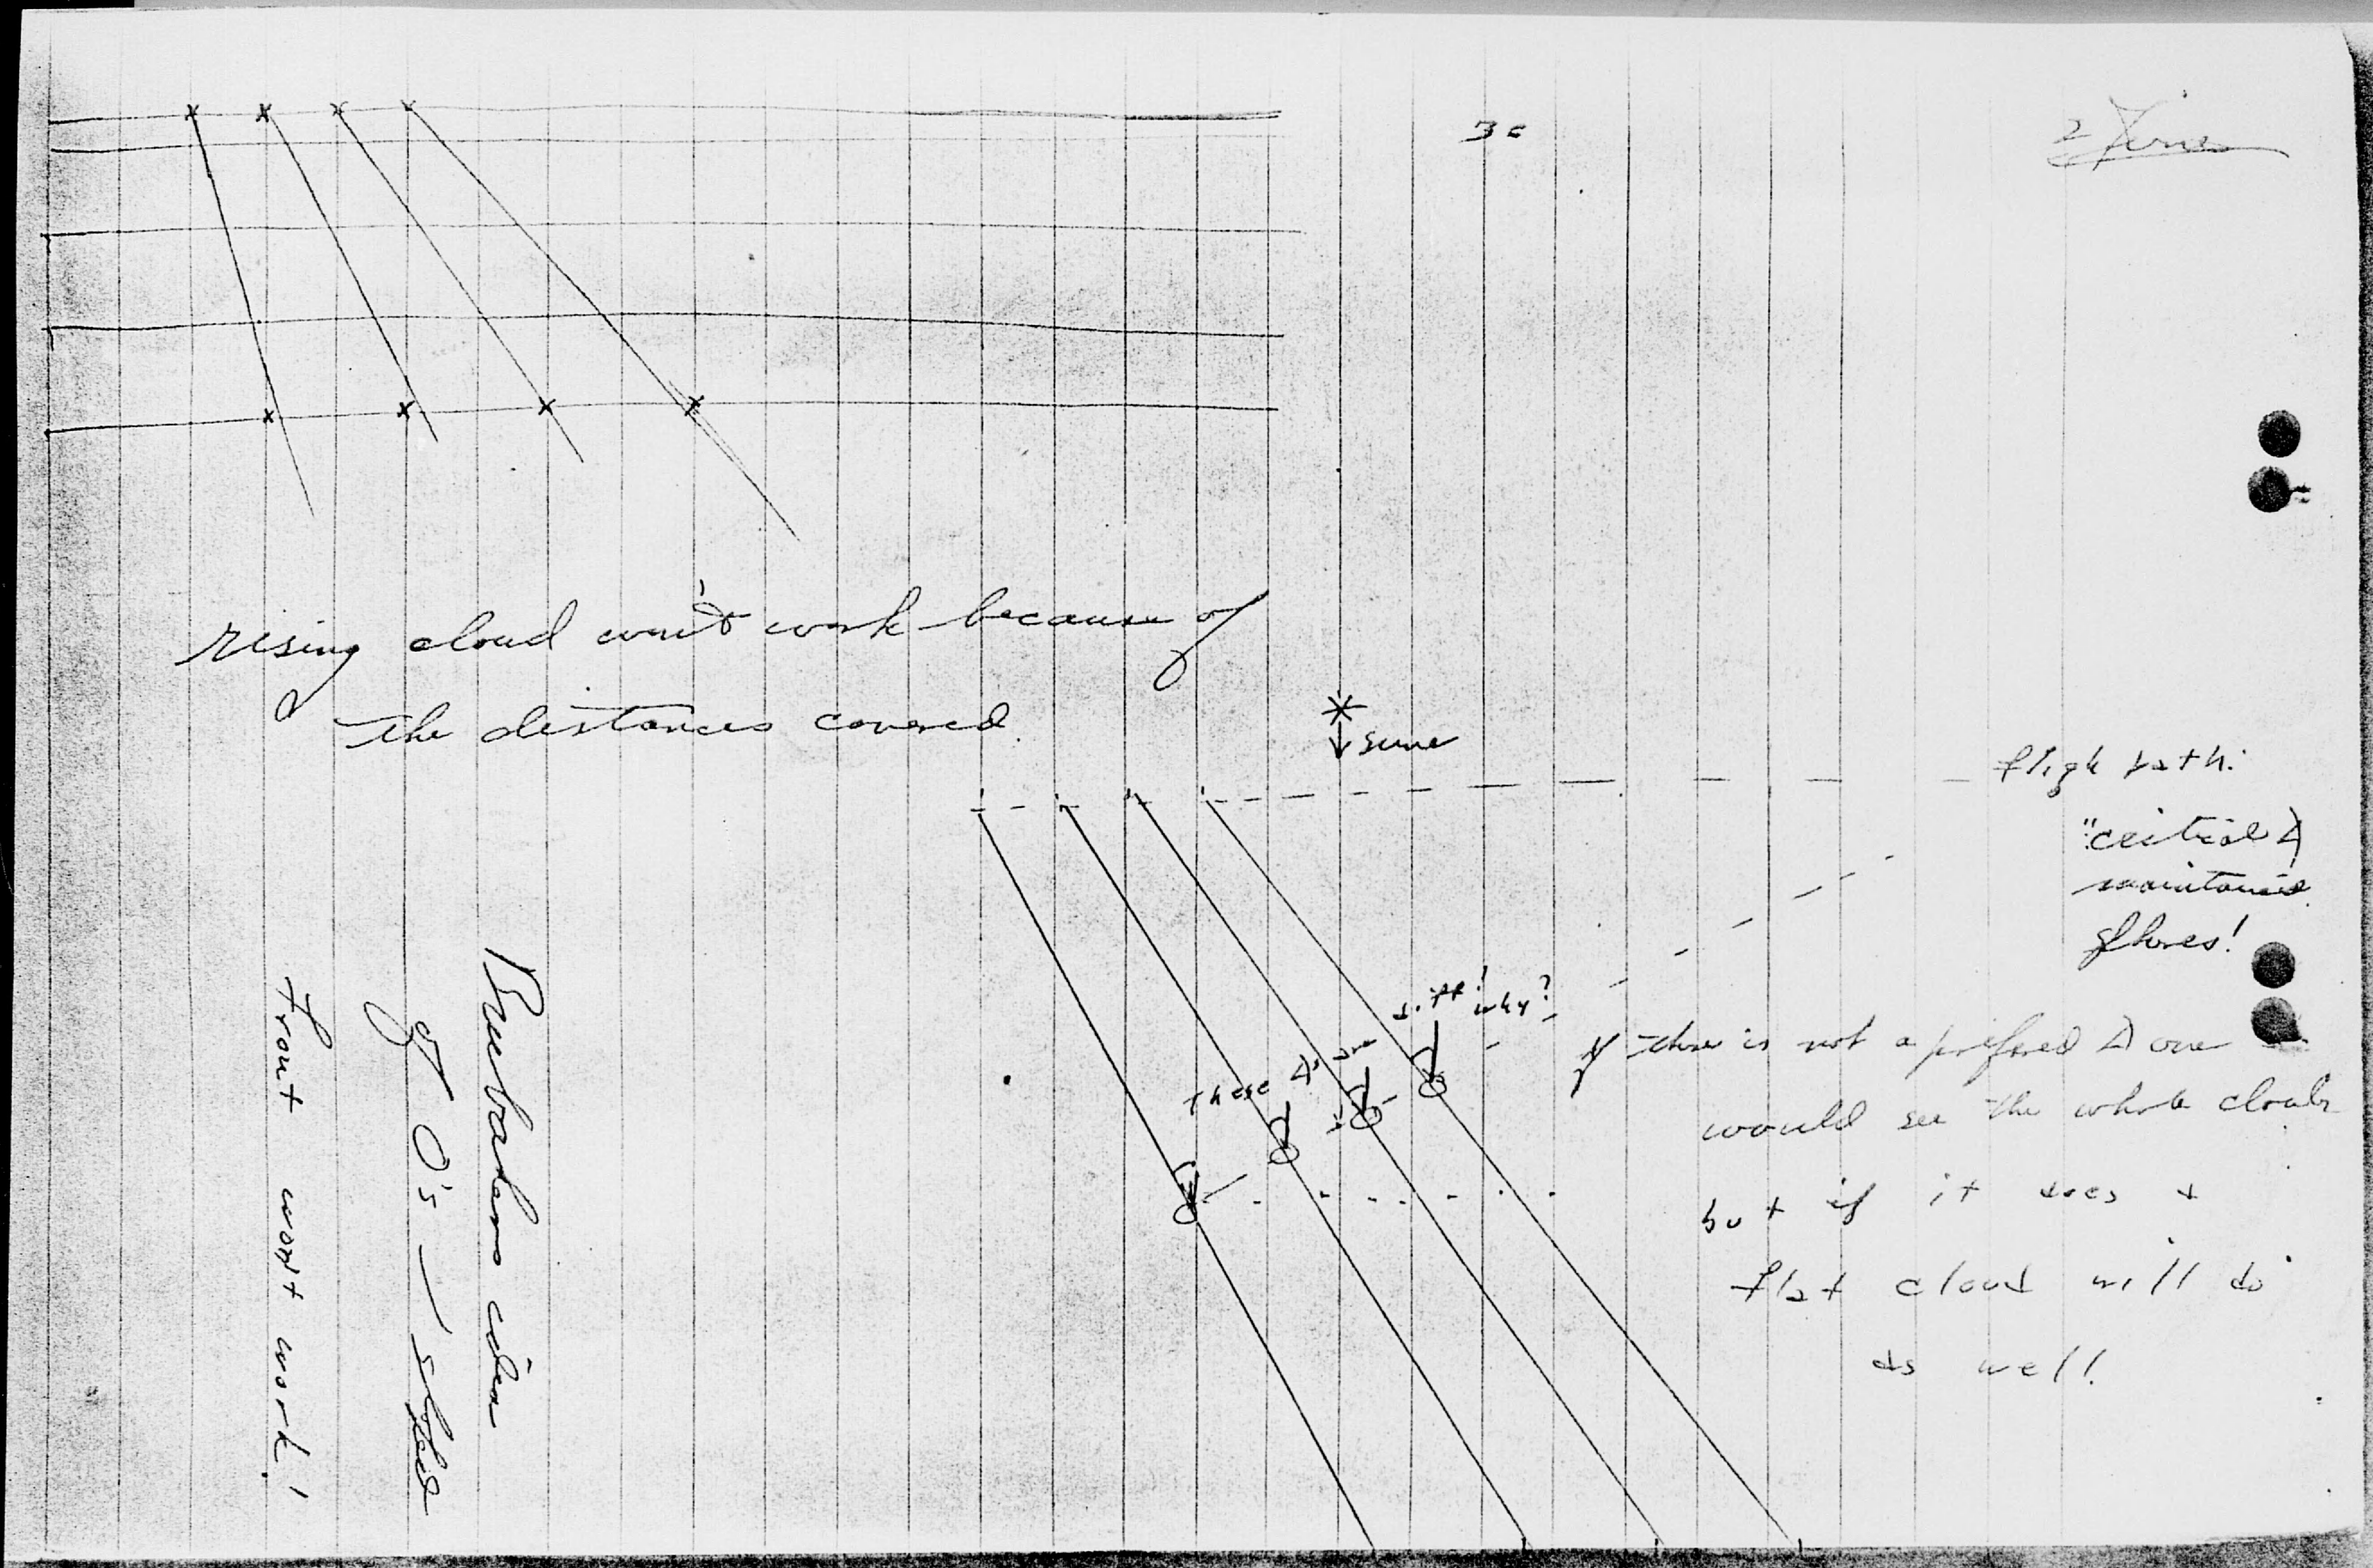 3c
rising cloud won't work because of
the distances covered.
sun
fligh path:
"critical ∠
maintained
phones!
these ∠'s are
diff! why?
if there is not a preferred ∠ one
would see the whole cloud
but if it does a
flat cloud will do
as well!
Brubakers idea
of O's — sheld
front wont work!